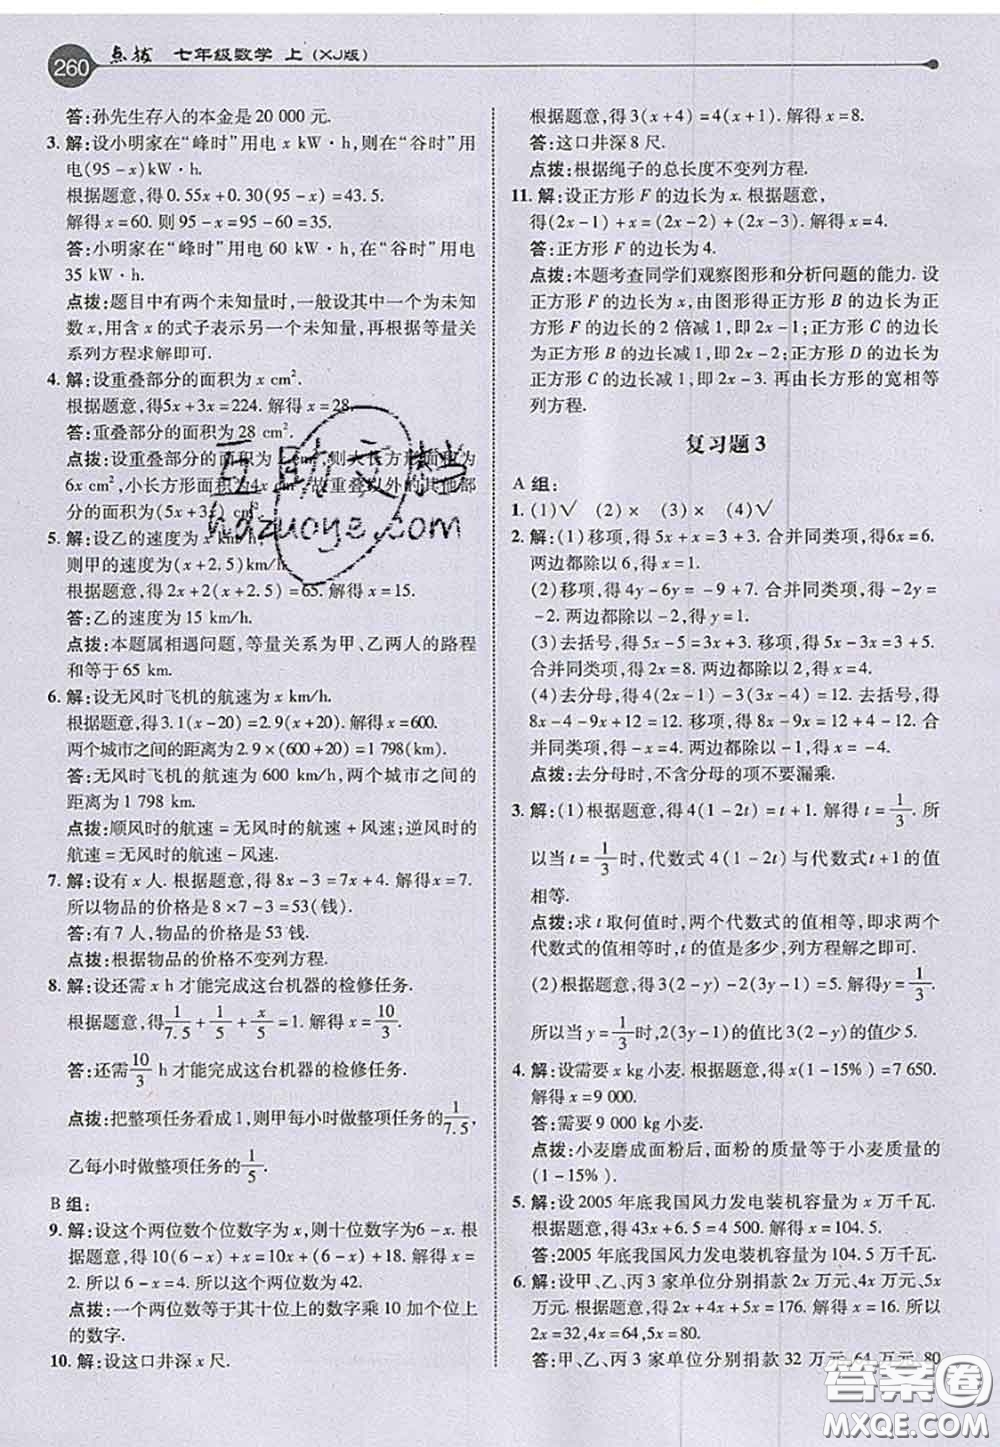 260 点拨 七年级数学 上(XJ版)
答:孙先生存入的本金是20 000元.
3. 解:设小明家在“峰时”用电x kW·h,则在“谷时”用
电(95-x)kW·h.
根据题意,得0.55x+0.30(95-x)=43.5.
解得x=60. 则95-x=95-60=35.
答:小明家在“峰时”用电60 kW·h,在“谷时”用电
35 kW·h.
点拨:题目中有两个未知量时,一般设其中一个为未知
数x,用含x的式子表示另一个未知量,再根据等量关
系列方程求解即可.
4. 解:设重叠部分的面积为x cm².
根据题意,得5x+3x=224. 解得x=28.
答:重叠部分的面积为28 cm².
点拨:设重叠部分的面积为x cm²,则大长方形面积为
6x cm²,小长方形面积为4x cm²,故重叠以外的其他部
分的面积为(5x+3x) cm².
5. 解:设乙的速度为x km/h,
则甲的速度为(x+2.5)km/h.
根据题意,得2x+2(x+2.5)=65. 解得x=15.
答:乙的速度为15 km/h.
点拨:本题属相遇问题,等量关系为甲、乙两人的路程
和等于65 km.
6. 解:设无风时飞机的航速为x km/h.
根据题意,得3.1(x-20)=2.9(x+20). 解得x=600.
两个城市之间的距离为2.9×(600+20)=1 798(km).
答:无风时飞机的航速为600 km/h,两个城市之间的
距离为1 798 km.
点拨:顺风时的航速=无风时的航速+风速;逆风时的
航速=无风时的航速-风速.
7. 解:设有x人. 根据题意,得8x-3=7x+4. 解得x=7.
所以物品的价格是8×7-3=53(钱).
答:有7人,物品的价格是53钱.
点拨:根据物品的价格不变列方程.
8. 解:设还需x h才能完成这台机器的检修任务.
根据题意,得1/7.5+1/5+x/5=1. 解得x=10/3.
答:还需10/3 h才能完成这台机器的检修任务.
点拨:把整项任务看成1,则甲每小时做整项任务的1/7.5,
乙每小时做整项任务的1/5.
B组:
9. 解:设这个两位数个位数字为x,则十位数字为6-x.
根据题意,得10(6-x)+x=10x+(6-x)+18. 解得x=
2. 所以6-x=4. 所以这个两位数为42.
点拨:一个两位数等于其十位上的数字乘10加个位上
的数字.
10. 解:设这口井深x尺.
根据题意,得3(x+4)=4(x+1). 解得x=8.
答:这口井深8尺.
点拨:根据绳子的总长度不变列方程.
11. 解:设正方形F的边长为x. 根据题意,
得(2x-1)+x=(2x-2)+(2x-3). 解得x=4.
答:正方形F的边长为4.
点拨:本题考查同学们观察图形和分析问题的能力. 设
正方形F的边长为x,由图形得正方形B的边长为正
方形F的边长的2倍减1,即2x-1;正方形C的边长
为正方形B的边长减1,即2x-2;正方形D的边长为
正方形C的边长减1,即2x-3. 再由长方形的宽相等
列方程.
复习题3
A组:
1. (1)√ (2)× (3)× (4)√
2. 解:(1)移项,得5x+x=3+3. 合并同类项,得6x=6.
两边都除以6,得x=1.
(2)移项,得4y-6y=-9+7. 合并同类项,得-2y=
-2. 两边都除以-2,得y=1.
(3)去括号,得5x-5=3x+3. 移项,得5x-3x=3+5.
合并同类项,得2x=8. 两边都除以2,得x=4.
(4)去分母,得4(2x-1)-3(3x-4)=12. 去括号,得
8x-4-9x+12=12. 移项,得8x-9x=12+4-12. 合
并同类项,得-x=4. 两边都除以-1,得x=-4.
点拨:去分母时,不含分母的项不要漏乘.
3. 解:(1)根据题意,得4(1-2t)=t+1. 解得t=1/3. 所
以当t=1/3时,代数式4(1-2t)与代数式t+1的值
相等.
点拨:求t取何值时,两个代数式的值相等,即求两个
代数式的值相等时,t的值是多少,列方程解之即可.
(2)根据题意,得3(2-y)-2(3y-1)=5. 解得y=1/3.
所以当y=1/3时,2(3y-1)的值比3(2-y)的值少5.
4. 解:设需要x kg小麦. 根据题意,得x(1-15%)=7 650.
解得x=9 000.
答:需要9 000 kg小麦.
点拨:小麦磨成面粉后,面粉的质量等于小麦质量的
(1-15%).
5. 解:设2005年底我国风力发电装机容量为x万千瓦.
根据题意,得43x+6.5=4 500. 解得x=104.5.
答:2005年底我国风力发电装机容量为104.5万千瓦.
6. 解:设甲、乙、丙3家单位分别捐款2x万元,4x万元,5x
万元. 根据题意,得2x+4x+5x=176. 解得x=16. 所以
2x=32,4x=64,5x=80.
答:甲、乙、丙3家单位分别捐款32万元,64万元,80
互助文档
hdzuoye.com
答案圈
MXQE.COM